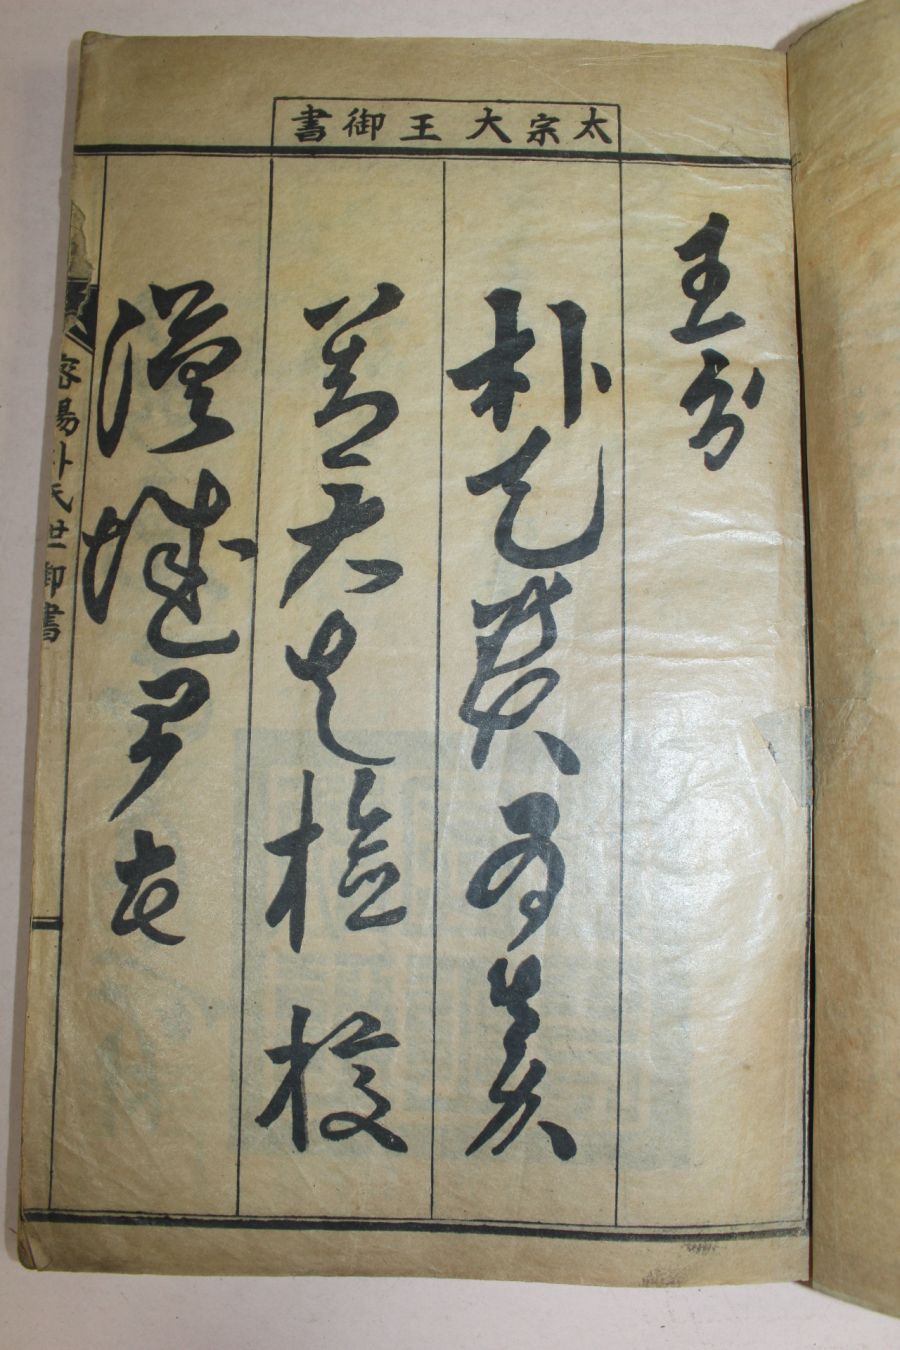 太宗大王御書
王旨
朴爲嘉
善大夫檢校
漢城尹者
密陽朴氏世御書